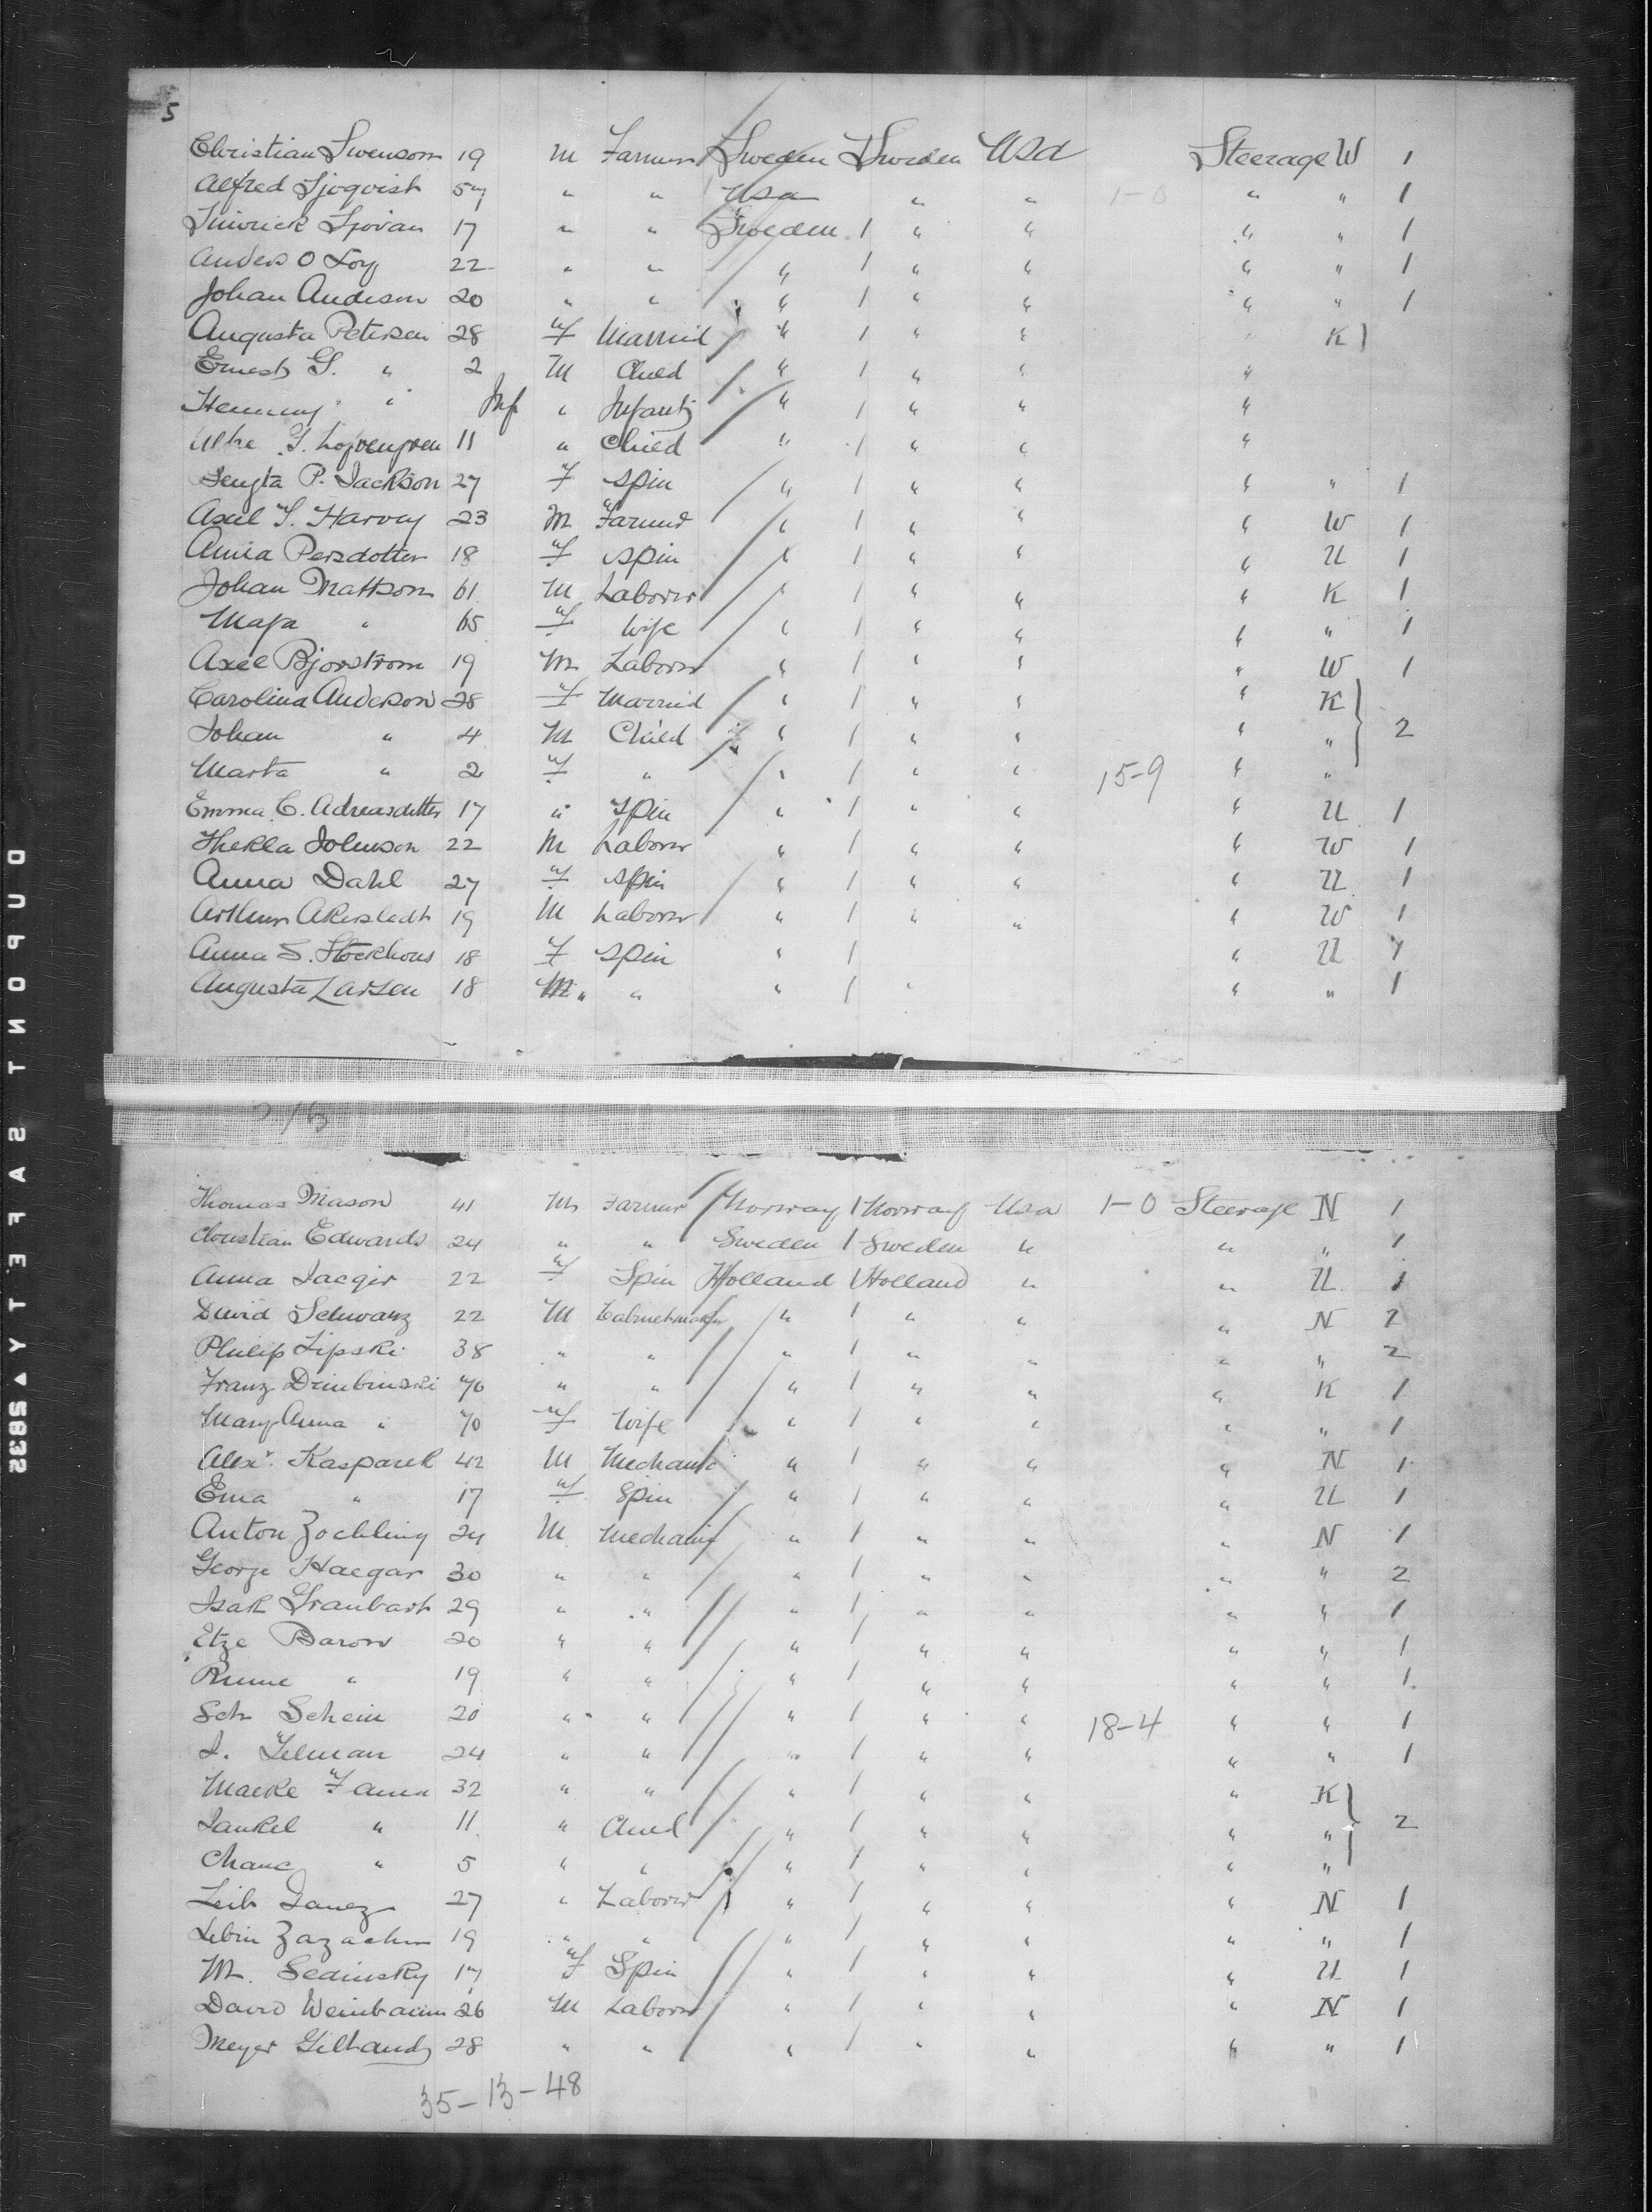 5
Christian Swenson 19 M Farmer Sweden Sweden USA Steerage W 1
Alfred Sjoqvist 57 " " USA " " 1-0 " " 1
17 " " Sweden 1 " " " " 1
Anders O Loy 22 " " " 1 " " " " 1
Johan Anderson 20 " " " 1 " " " " 1
Augusta Petersen 28 F Married " 1 " " " K
Ernest G. " 2 M Child " 1 " " "
Hemming " Inf " Infant " 1 " " "
11 " Child " 1 " " "
Bengta P. Jackson 27 F Spin " 1 " " " " 1
Axel F. Harvey 23 M Farmer " 1 " " " W 1
Anna Persdotter 18 F Spin " 1 " " " U 1
Johan Mattson 61 M Laborer " 1 " " " K 1
Maja " 65 F Wife " 1 " " " " 1
Axel Bjorstrom 19 M Laborer " 1 " " " W 1
Carolina Anderson 28 F Married " 1 " " " K
Johan " 4 M Child " 1 " " " " 2
Marta " 2 F " " 1 " " 15-9 " "
Emma C. Adreasdotter 17 " Spin " 1 " " " U 1
Thekla Johnson 22 M Laborer " 1 " " " W 1
Anna Dahl 27 F Spin " 1 " " " U 1
Arthur Akerstedt 19 M Laborer " 1 " " " W 1
Anna S. Stockhous 18 F Spin " 1 " U 1
Augusta Larsen 18 M " " " 1 " " " 1
Thomas Mason 41 M Farmer Norway 1 Norway USA 1-0 Steerage N 1
Christian Edwards 24 " " Sweden 1 Sweden " " " 1
Anna Jaeger 22 F Spin Holland 1 Holland " " U 1
David Schwarz 22 M Cabinetmaker " 1 " " " N 2
Philip Lipski 38 " " " 1 " " " " 2
Franz Dembinski 70 " " " 1 " " " K 1
Mary Anna " 70 F Wife " 1 " " " " 1
Alexr. Kasparek 42 M Mechanic " 1 " " " N 1
Ema " 17 F Spin " 1 " " " U 1
Anton Zochling 24 M Mechanic " 1 " " " N 1
George Haegar 30 " " " 1 " " " " 2
Isak Graubart 29 " " " 1 " " " " 1
Etze Baron 20 " " " 1 " " " " 1
" 19 " " " 1 " " " " 1
Sch Schein 20 " " " 1 " " 18-4 " " 1
J. Gelman 24 " " " 1 " " " " 1
Macke Fama 32 " " " 1 " " " K
Jankel " 11 " Child " 1 " " " " 2
Chane " 5 " " " 1 " " " "
Leib Janez 27 " Laborer " 1 " " " N 1
Lebin Zazachm 19 " " " 1 " " " " 1
M. Sedinsky 17 F Spin " 1 " " " U 1
David Weinbaum 26 M Laborer " 1 " " " N 1
Meyer 28 " " " 1 " " " " 1
35-13-48
DUPONT SAFETY ▲ 5832